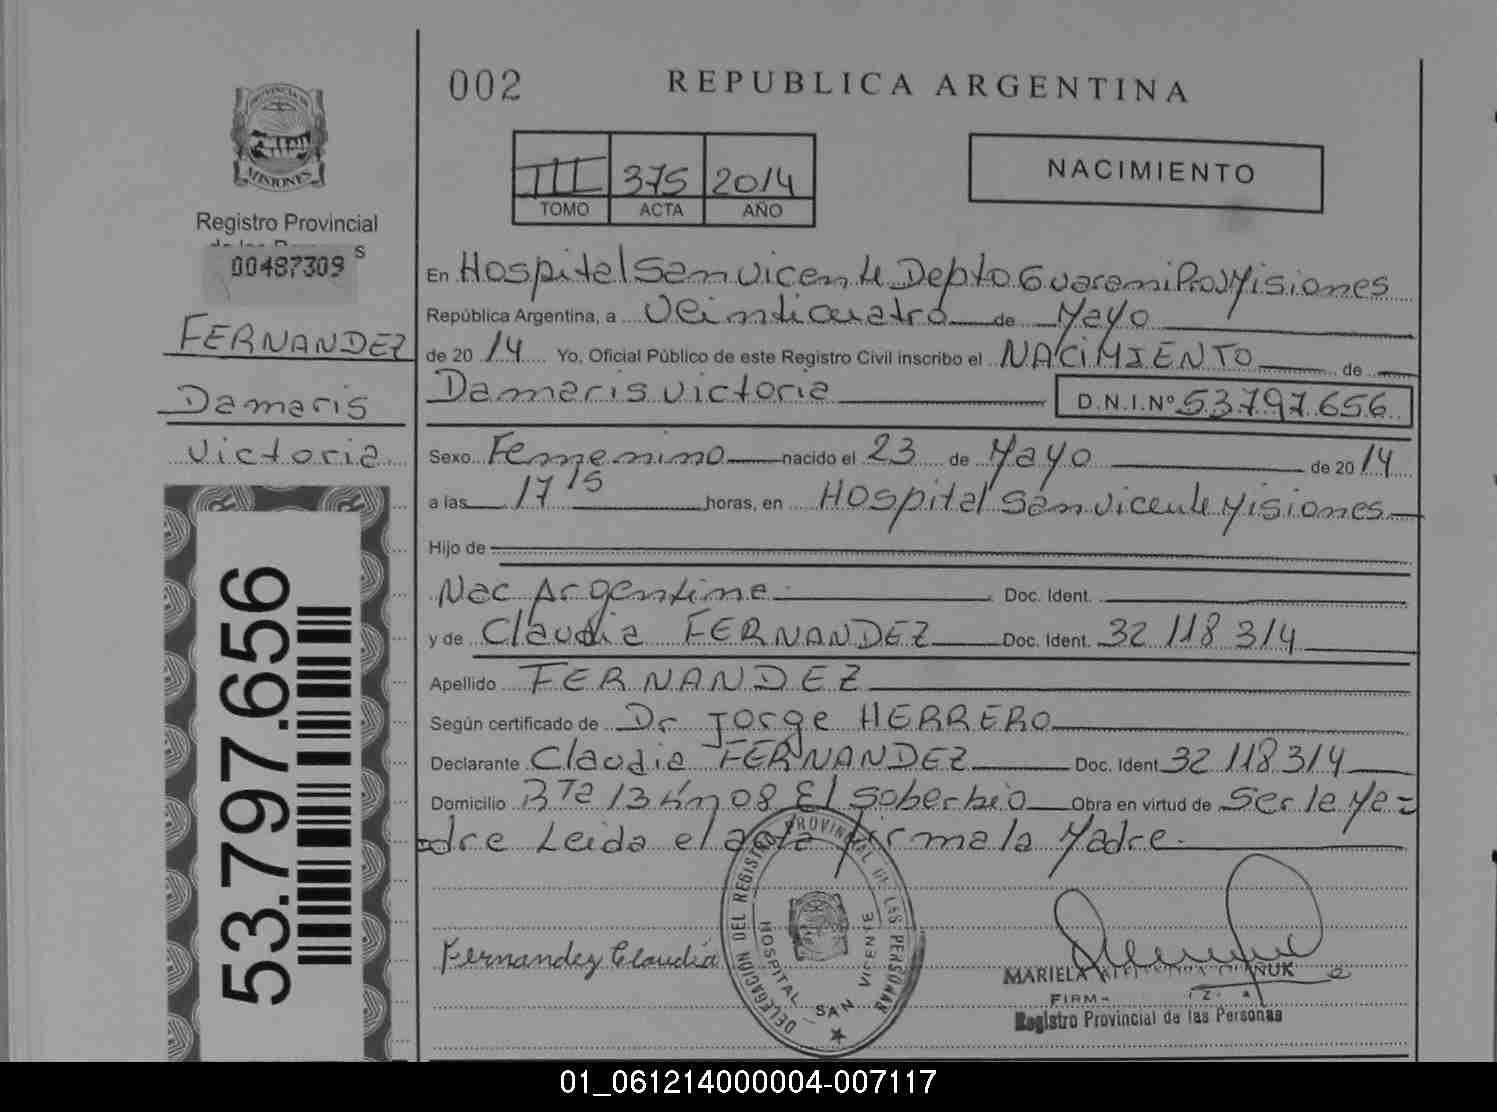 PROVINCIA DE
MISIONES
Registro Provincial
de las Personas
00487309
FERNANDEZ
Damaris
Victoria
53.797.656
002
REPUBLICA ARGENTINA
III 375 2014
TOMO ACTA AÑO
NACIMIENTO
En Hospital San Vicente Depto Guarani Prov Misiones
República Argentina, a Veinticuatro de Mayo
de 2014 Yo, Oficial Público de este Registro Civil inscribo el NACIMIENTO de
Damaris Victoria D.N.I.Nº 53.797.656
Sexo Femenino nacido el 23 de Mayo de 2014
a las 17 15 horas, en Hospital San Vicente Misiones
Hijo de
Nac Argentina Doc. Ident.
y de Claudia FERNANDEZ Doc. Ident. 32 118 314
Apellido FERNANDEZ
Según certificado de Dr Jorge HERRERO
Declarante Claudia FERNANDEZ Doc. Ident 32 118 314
Domicilio 13 Km 08 El Soberbio Obra en virtud de Ser la Ma=
dre Leida el acta firma la Madre.
Fernandez Claudia
DELEGACIÓN DEL REGISTRO PROVINCIAL DE LAS PERSONAS
HOSPITAL SAN VICENTE
MARIELA
Registro Provincial de las Personas
01_061214000004-007117